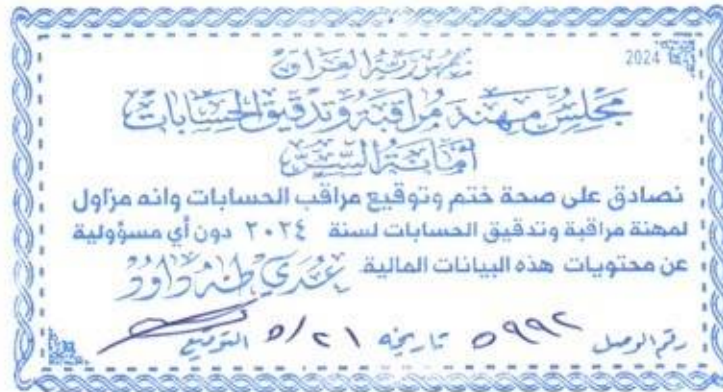 2024
جمهورية العراق
مجلس مهنة مراقبة وتدقيق الحسابات
أمانة السر
نصادق على صحة ختم وتوقيع مراقب الحسابات وانه مزاول
لمهنة مراقبة وتدقيق الحسابات لسنة ٢٠٢٤ دون أي مسؤولية
عن محتويات هذه البيانات المالية عدي طه داوود
رقم الوصل ٥٩٩٢ تاريخه ٥/٢١ التوقيع